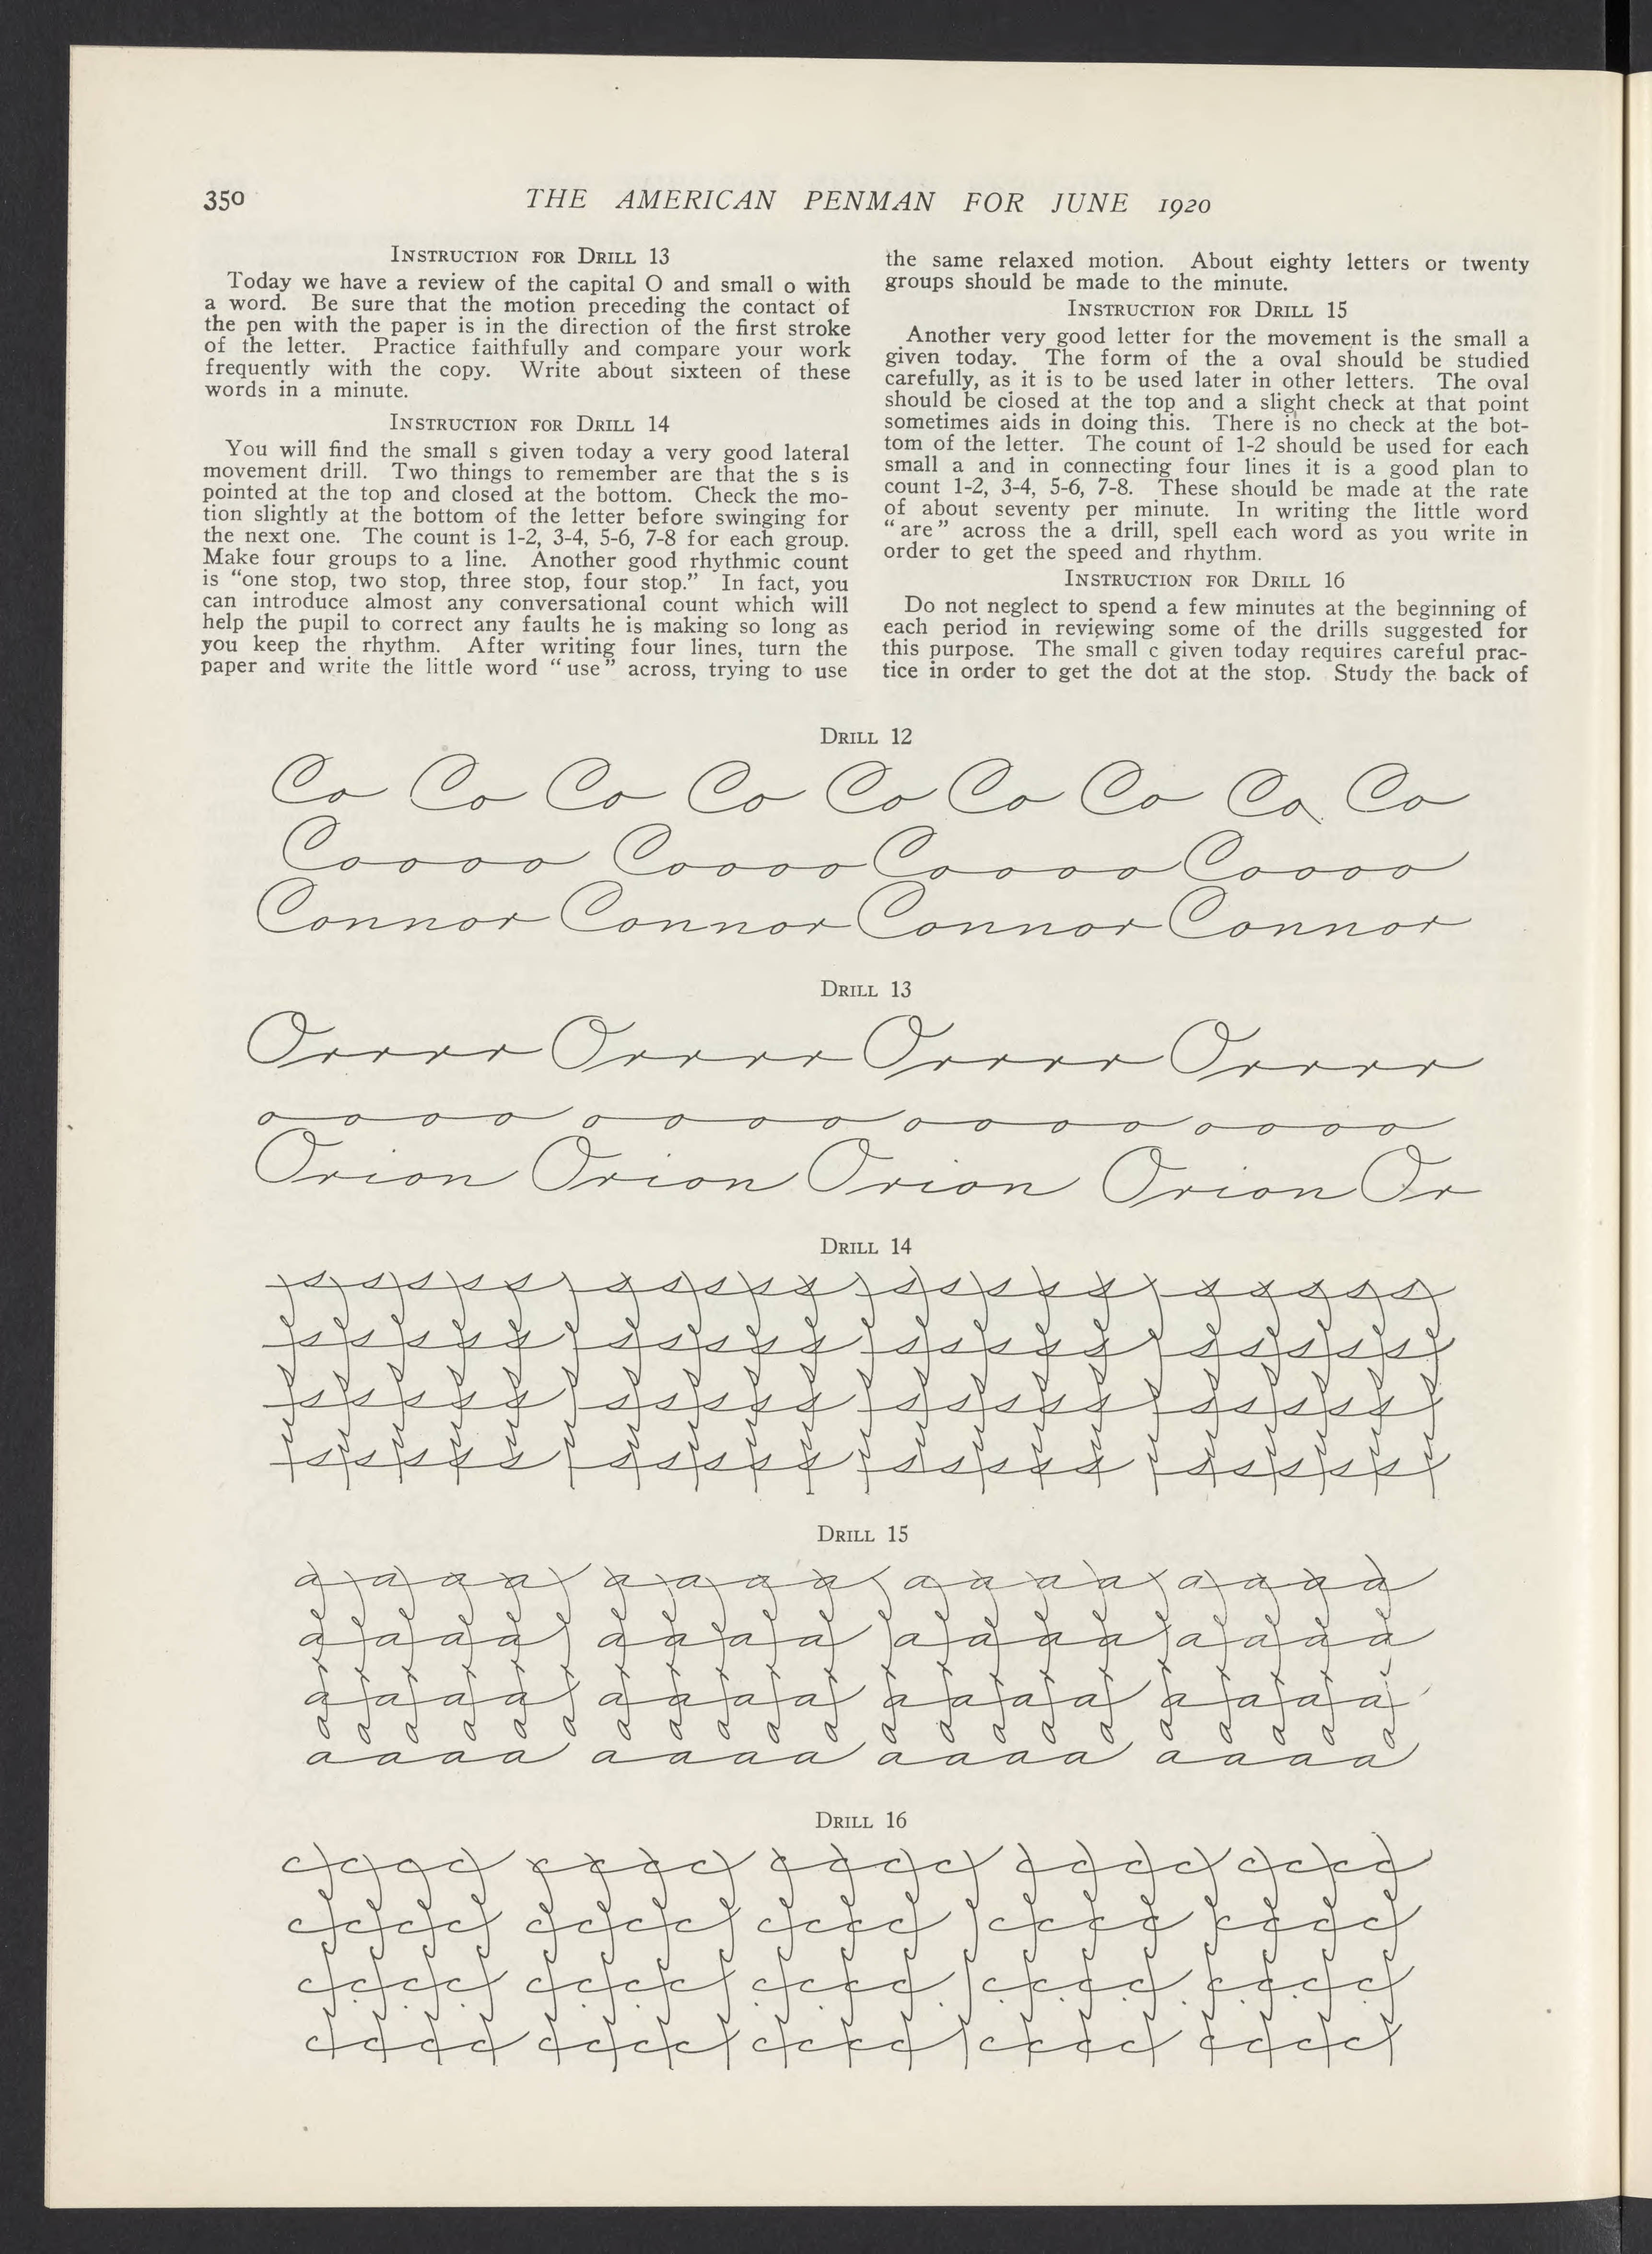 350
THE AMERICAN PENMAN FOR JUNE 1920
INSTRUCTION FOR DRILL 13
Today we have a review of the capital O and small o with
a word. Be sure that the motion preceding the contact of
the pen with the paper is in the direction of the first stroke
of the letter. Practice faithfully and compare your work
frequently with the copy. Write about sixteen of these
words in a minute.
INSTRUCTION FOR DRILL 14
You will find the small s given today a very good lateral
movement drill. Two things to remember are that the s is
pointed at the top and closed at the bottom. Check the mo-
tion slightly at the bottom of the letter before swinging for
the next one. The count is 1-2, 3-4, 5-6, 7-8 for each group.
Make four groups to a line. Another good rhythmic count
is "one stop, two stop, three stop, four stop." In fact, you
can introduce almost any conversational count which will
help the pupil to correct any faults he is making so long as
you keep the rhythm. After writing four lines, turn the
paper and write the little word "use" across, trying to use
the same relaxed motion. About eighty letters or twenty
groups should be made to the minute.
INSTRUCTION FOR DRILL 15
Another very good letter for the movement is the small a
given today. The form of the a oval should be studied
carefully, as it is to be used later in other letters. The oval
should be closed at the top and a slight check at that point
sometimes aids in doing this. There is no check at the bot-
tom of the letter. The count of 1-2 should be used for each
small a and in connecting four lines it is a good plan to
count 1-2, 3-4, 5-6, 7-8. These should be made at the rate
of about seventy per minute. In writing the little word
"are" across the a drill, spell each word as you write in
order to get the speed and rhythm.
INSTRUCTION FOR DRILL 16
Do not neglect to spend a few minutes at the beginning of
each period in reviewing some of the drills suggested for
this purpose. The small c given today requires careful prac-
tice in order to get the dot at the stop. Study the back of
DRILL 12
Co Co Co Co Co Co Co Co Co
Coooo Coooo Coooo Coooo
Connor Connor Connor Connor
DRILL 13
Orrrr Orrrr Orrrr Orrrr
oooo oooo oooo oooo
Orion Orion Orion Orion Or
DRILL 14
DRILL 15
aaaa aaaa aaaa aaaa
aaaa aaaa aaaa aaaa
aaaa aaaa aaaa aaaa
aaaa aaaa aaaa aaaa
DRILL 16
cccc cccc cccc cccc cccc
cccc cccc cccc cccc cccc
cccc cccc cccc cccc cccc
cccc cccc cccc cccc cccc